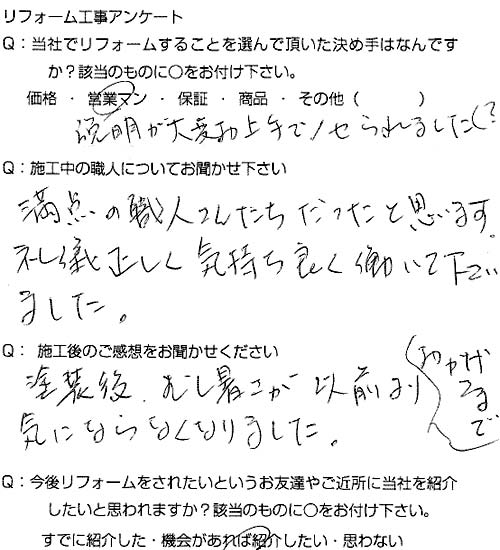 リフォーム工事アンケート
Q：当社でリフォームすることを選んで頂いた決め手はなんです
か？該当のものに○をお付け下さい。
価格 ・ 営業マン ・ 保証 ・ 商品 ・ その他（　　　）
説明が大変お上手でノセられました(?
Q：施工中の職人についてお聞かせ下さい
満点の職人さんたちだったと思います。
礼儀正しく気持ち良く働いて下さい
ました。
Q： 施工後のご感想をお聞かせください
塗装後、むし暑さが以前より
(おかげさまで)
気にならなくなりました。
Q：今後リフォームをされたいというお友達やご近所に当社を紹介
したいと思われますか？該当のものに○をお付け下さい。
すでに紹介した・機会があれば紹介したい・思わない